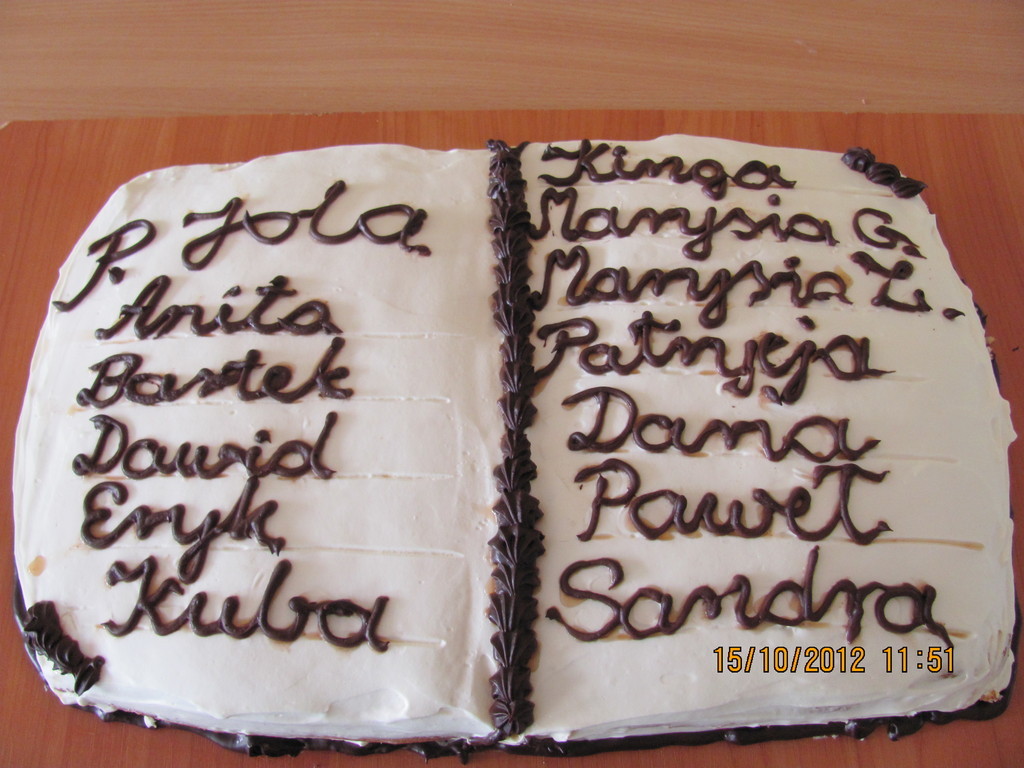 P. Jola
Anita
Bartek
Dawid
Eryk
Kuba
Kinga
Marysia G.
Marysia Z.
Patrycja
Daria
Paweł
Sandra
15/10/2012 11:51